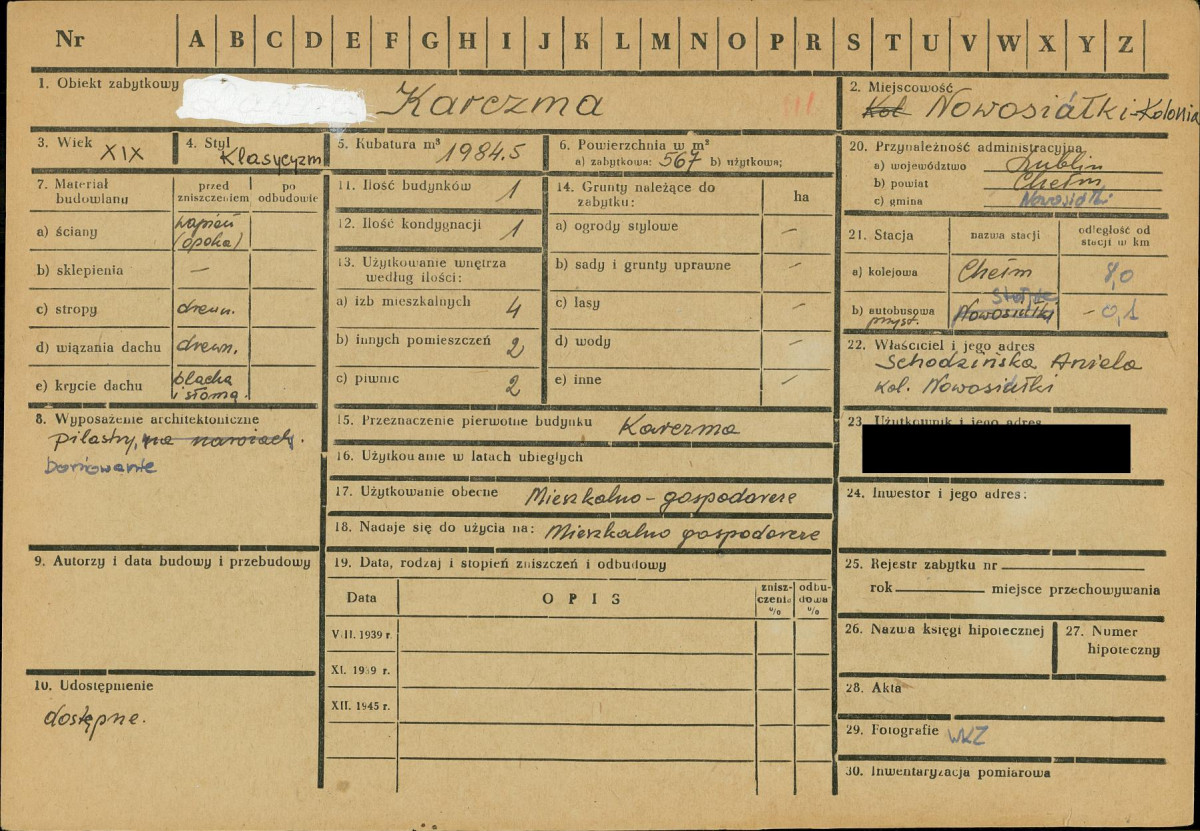 Nr A B C D E F G H I J K L M N O P R S T U V W X Y Z
1. Obiekt zabytkowy Karczma III
2. Miejscowość
Kol Nowosiółki-Kolonia
3. Wiek XIX
4. Styl Klasycyzm
5. Kubatura m³ 1984.5
6. Powierzchnia w m²
a) zabytkowa: 567 b) użytkowa;
20. Przynależność administracyjna
a) województwo Lublin
b) powiat Chełm
c) gmina Nowosiółki
7. Materiał budowlany
przed zniszczeniem
po odbudowie
a) ściany wapień (opoka)
b) sklepienia —
c) stropy drewn.
d) wiązania dachu drewn.
e) krycie dachu blacha i słoma.
11. Ilość budynków 1
12. Ilość kondygnacji 1
13. Użytkowanie wnętrza
według ilości:
a) izb mieszkalnych 4
b) innych pomieszczeń 2
c) piwnic 2
14. Grunty należące do
zabytku: ha
a) ogrody stylowe –
b) sady i grunty uprawne –
c) lasy –
d) wody –
e) inne –
21. Stacja nazwa stacji odległość od
stacji w km
a) kolejowa Chełm 8,0
b) autobusowa Nowosiółki – 0,1
przyst.
22. Właściciel i jego adres
Schodzińska Aniela
kol. Nowosiółki
8. Wyposażenie architektoniczne
pilastry, na narożach.
boniowanie
15. Przeznaczenie pierwotne budynku Karczma
16. Użytkowanie w latach ubiegłych
17. Użytkowanie obecne Mieszkalno-gospodarcze
18. Nadaje się do użycia na: Mieszkalno gospodarcze
23. Użytkownik i jego adres
24. Inwestor i jego adres:
9. Autorzy i data budowy i przebudowy
19. Data, rodzaj i stopień zniszczeń i odbudowy
Data OPIS zniszczenia % odbudowa %
VII. 1939 r.
XI. 1939 r.
XII. 1945 r.
25. Rejestr zabytku nr
rok miejsce przechowywania
26. Nazwa księgi hipotecznej
27. Numer
hipoteczny
10. Udostępnienie
dostępne.
28. Akta
29. Fotografie WKZ
30. Inwentaryzacja pomiarowa